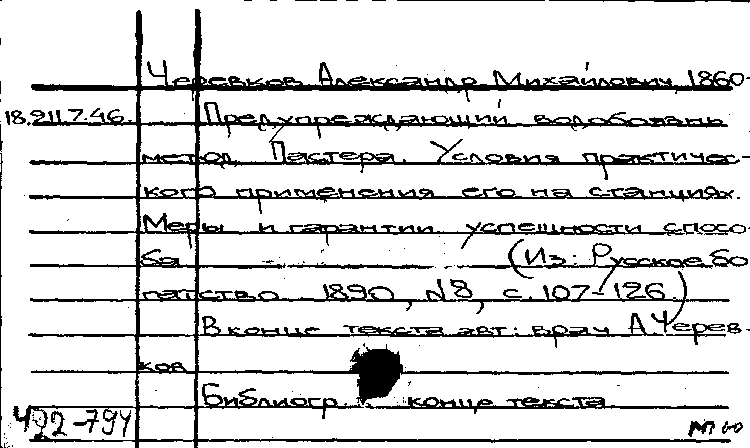 Черевков Александр Михайлович, 1860-
18.211.7.46. Предупреждающий водобоязнь
метод Пастера. Условия практичес-
кого применения его на станциях.
Меры и гарантии успешности спосо-
ба (Из: Русское бо
гатство 1890, №8, с. 107-126)
В конце текста авт: врач А.Черев-
ков
Библиогр. конце текста
Ч92-794